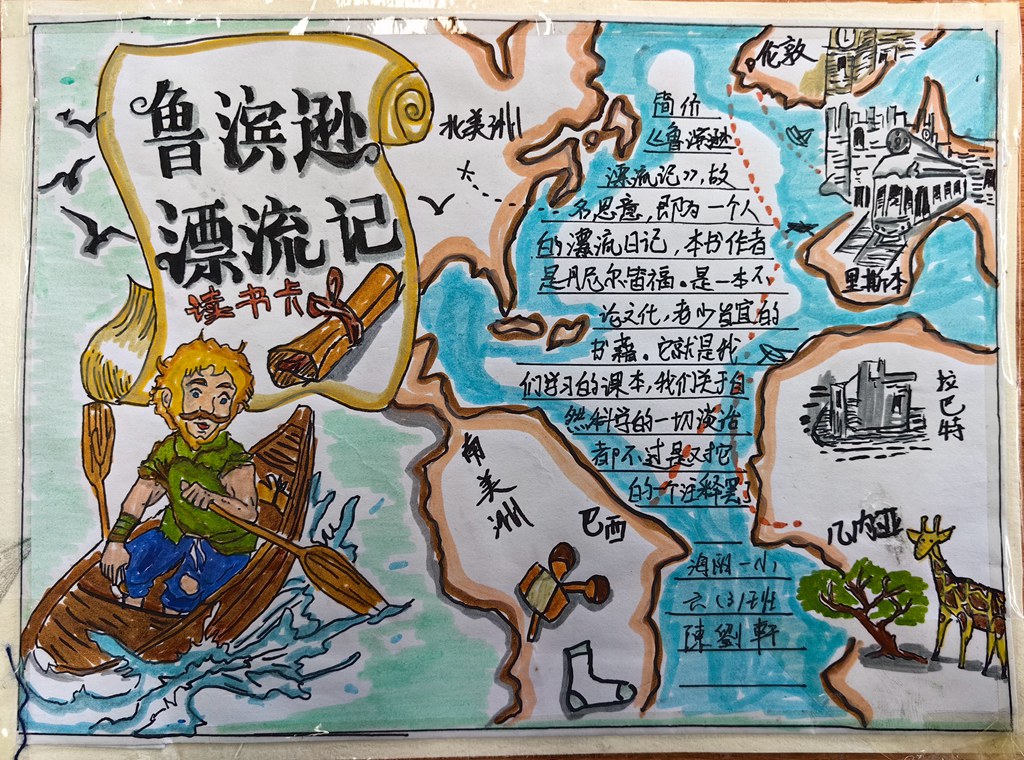 鲁滨逊
漂流记
读书卡
北美洲
南美洲
巴西
伦敦
里斯本
拉巴特
几内亚
简价
《鲁滨逊
漂流记》,故
名思意,即为一个人
的漂流日记,本书作者
是丹尼尔笛福。是一本不
论文化,老少皆宜的
书籍。它就是我
们学习的课本,我们关于自
然科学的一切演话
都不过是对它
的一个注释罢了
海阴一小
六(3)班
陳劉軒